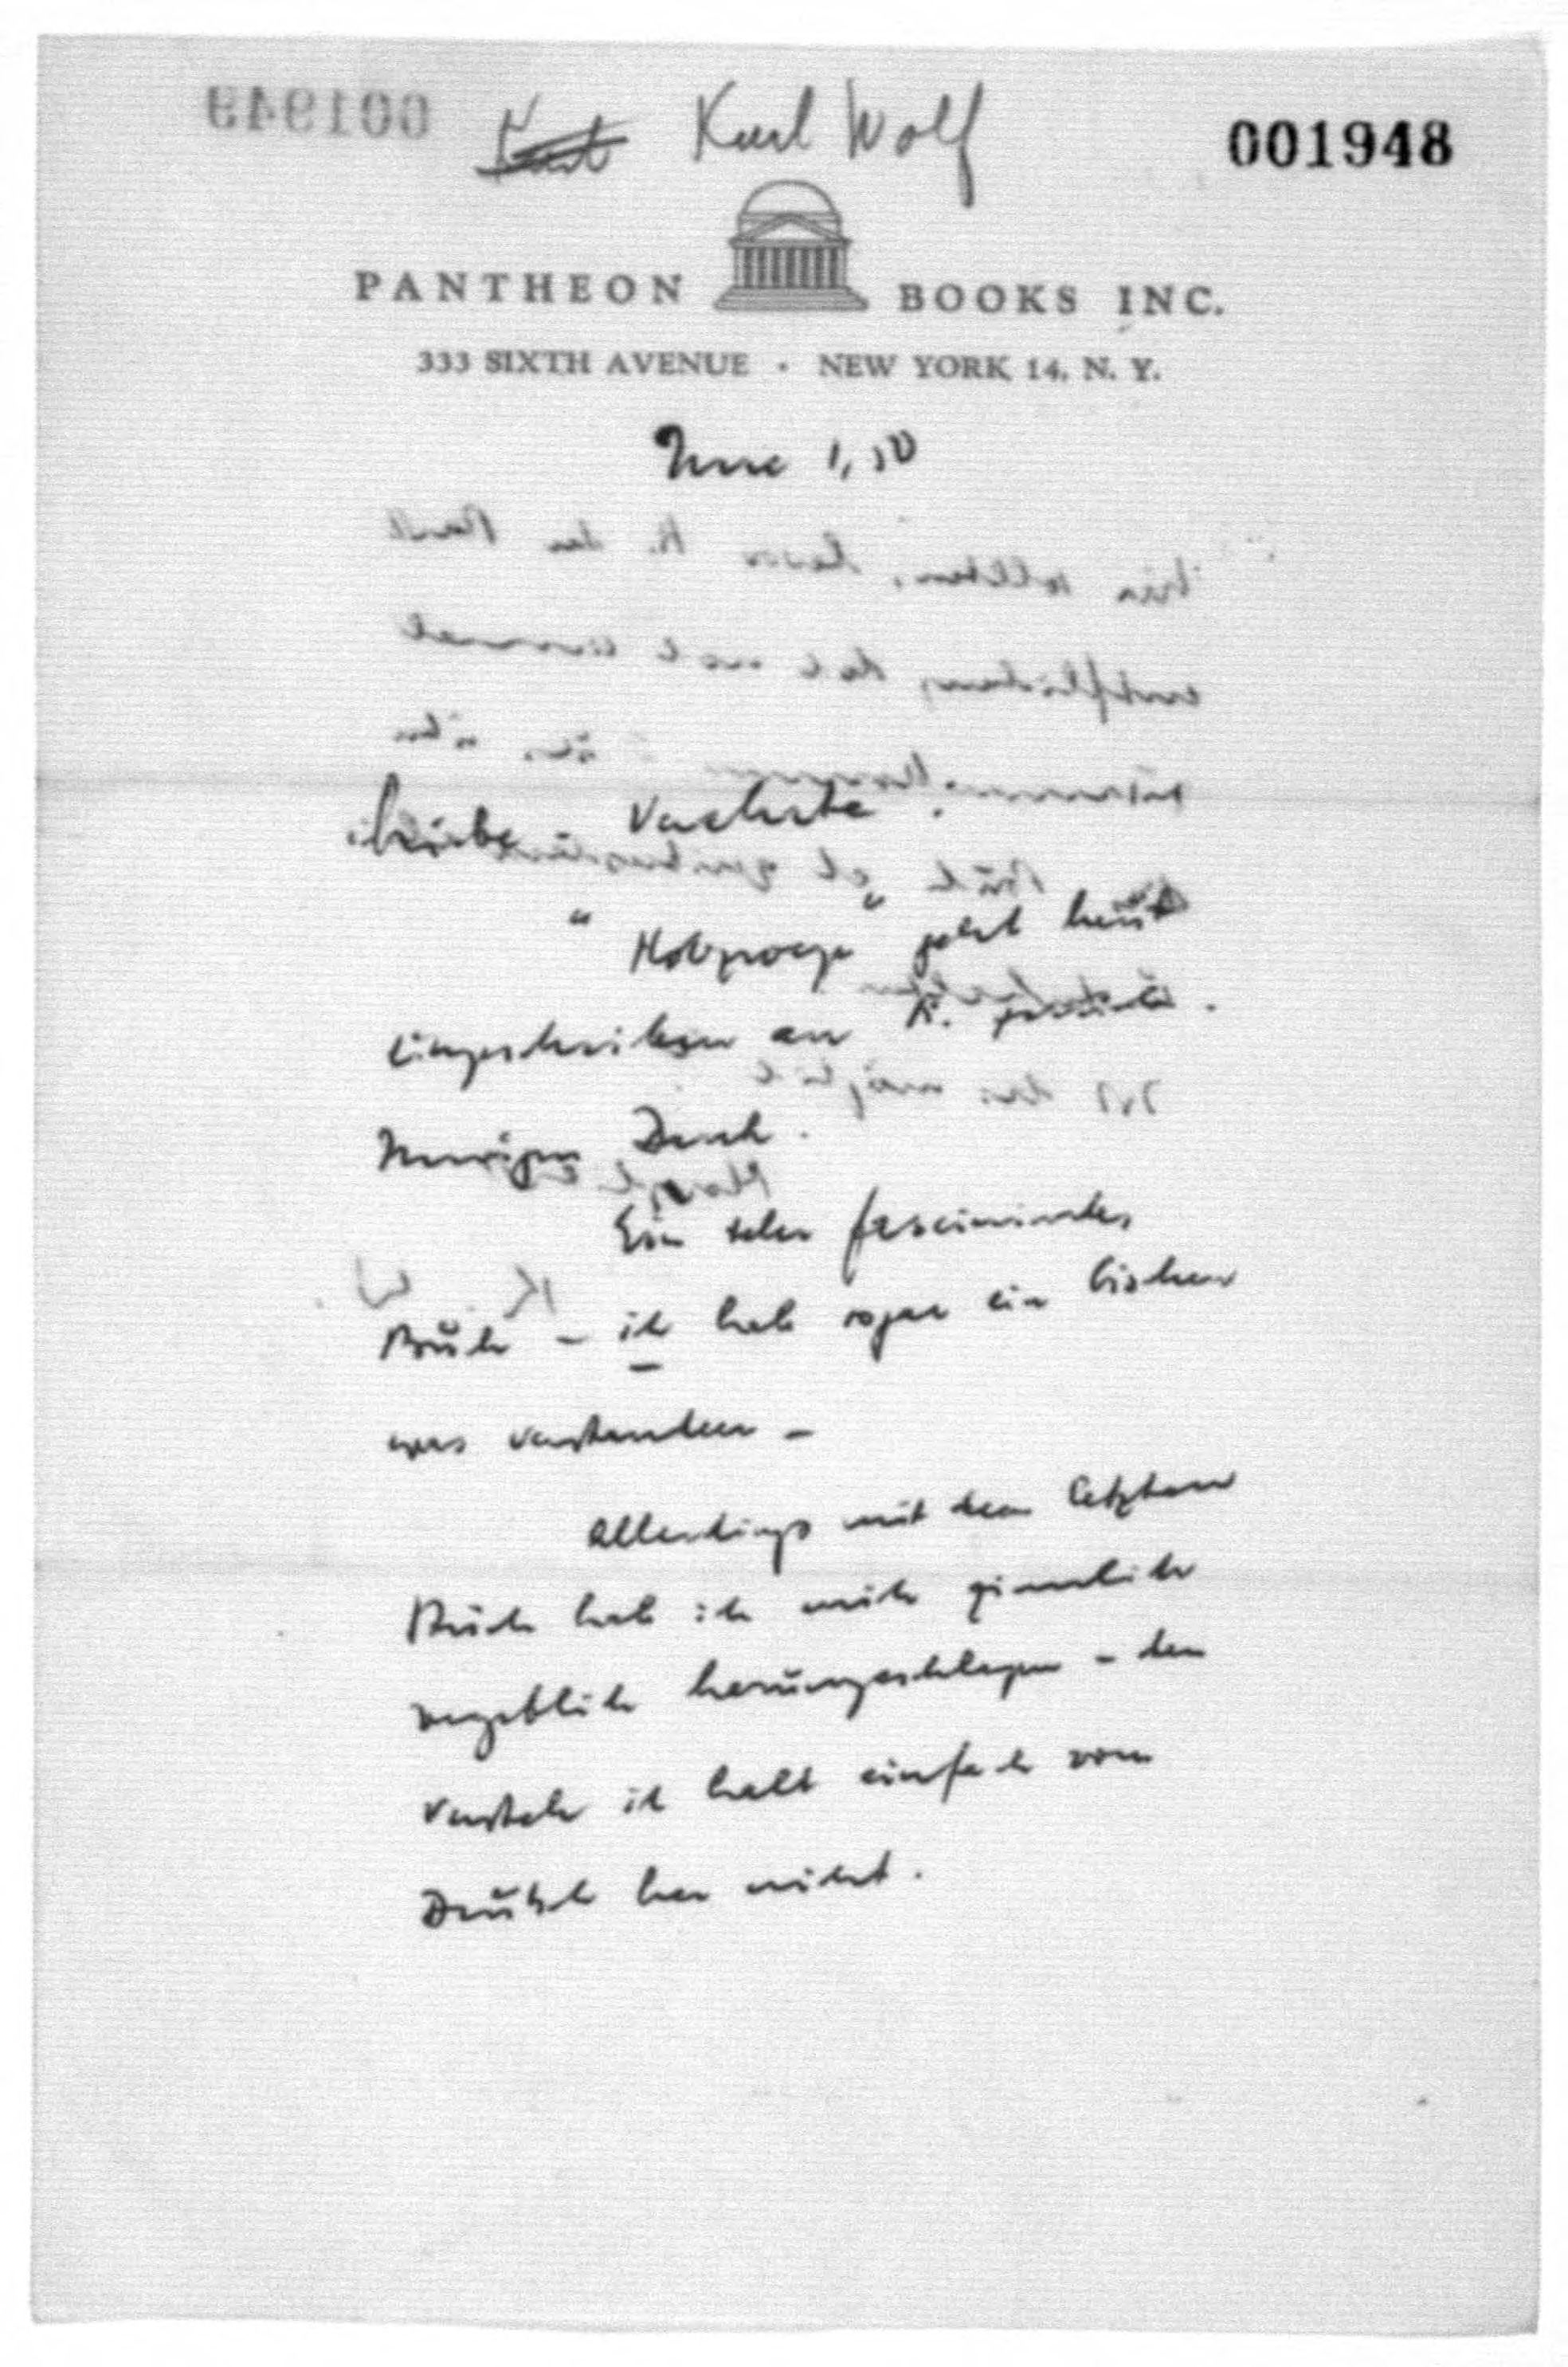 001948
Kurt Karl Wolf
PANTHEON BOOKS INC.
333 SIXTH AVENUE · NEW YORK 14, N. Y.
June 1, 50
Liebe, Verehrte
"Holzwege" geht heut
eingeschrieben an K. zurück.
Innigen Dank.
Ein sehr fascinirendes
Buch – ich hab sogar ein bischen
was verstanden –
Allerdings mit dem letzten
Stück hab ich mich ziemlich
vergeblich herumgeschlagen – den
versteh ich halt einfach vom
Deutsch her nicht.